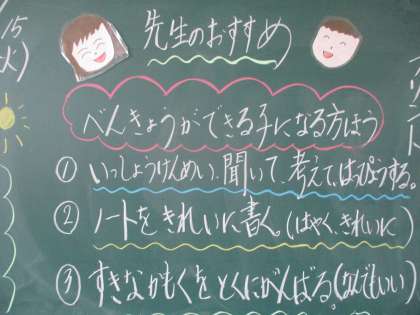 15
火)
先生のおすすめ
べんきょうができる子になる方ほう
① いっしょうけんめい、聞いて、考えて、はっぴょうする。
② ノートをきれいに書く。(はやく、きれいに)
③ すきなかもくをとくにがんばる。(なんでもいい)